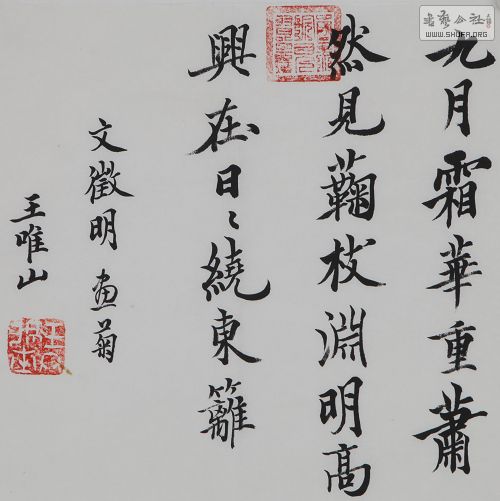 九月霜華重蕭
然見蘜枝淵明高
興在日〻繞東籬
文徵明畫菊
王唯山
書藝公社
WWW.SHUFA.ORG